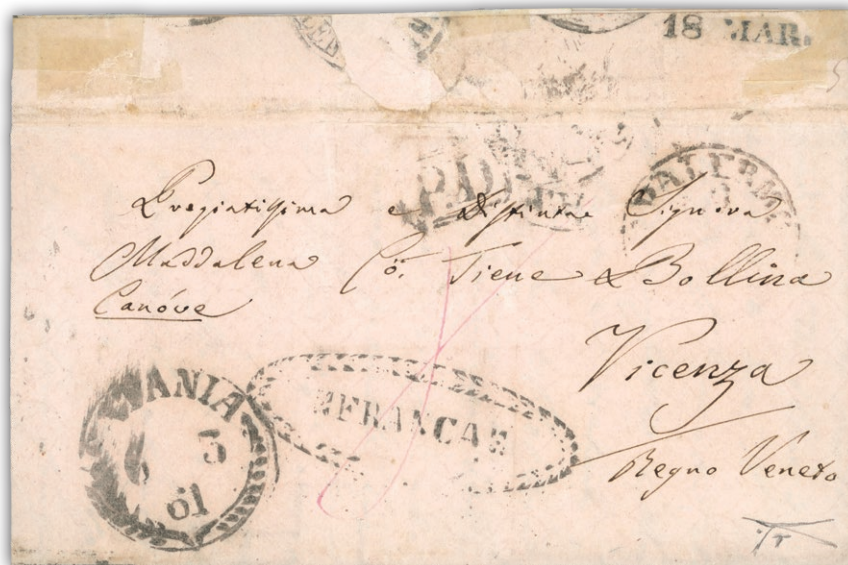 18 MAR.
P.D.
PALERM
Pregiatissima e Distinta Signora
Maddalena Co. Tiene & Bollina
Canóve
Vicenza
Regno Veneto
ANIA
3
61
FRANCA